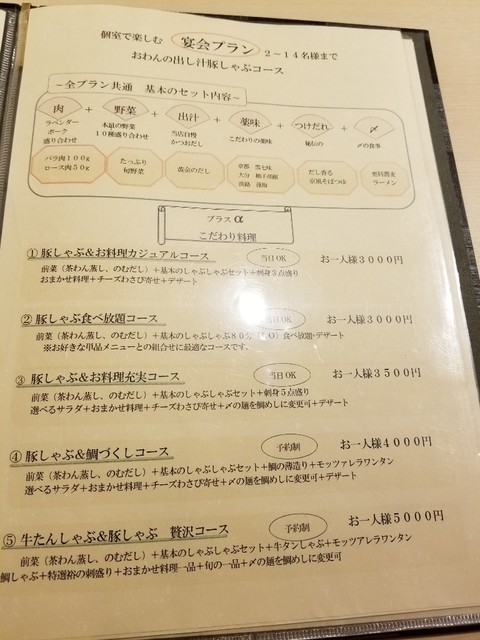 個室で楽しむ 宴会プラン 2～14名様まで
おわんの出し汁豚しゃぶコース
～全プラン共通 基本のセット内容～
肉 + 野菜 + 出汁 + 薬味 + つけだれ + 〆
ラベンダーポーク盛り合わせ
本日の野菜10種盛り合わせ
当店自慢かつおだし
こだわりの薬味
秘伝の
〆の食事
バラ肉100g
ロース肉50g
たっぷり旬野菜
黄金のだし
京都 黒七味
大分 柚子胡椒
淡路 藻塩
だし香る
京風そばつゆ
更科蕎麦
ラーメン
プラスα
こだわり料理
①豚しゃぶ&お料理カジュアルコース 当日OK お一人様3000円
前菜（茶わん蒸し、のむだし）+基本のしゃぶしゃぶセット+刺身3点盛り
おまかせ料理+チーズわさび寄せ+デザート
②豚しゃぶ食べ放題コース 当日OK お一人様3000円
前菜（茶わん蒸し、のむだし）+基本のしゃぶしゃぶ80分 食べ放題・デザート
※お好きな単品メニューとの組合せに最適なコースです。
③豚しゃぶ&お料理充実コース 当日OK お一人様3500円
前菜（茶わん蒸し、のむだし）+基本のしゃぶしゃぶセット+刺身5点盛り
選べるサラダ+おまかせ料理+チーズわさび寄せ+〆の麺を鯛めしに変更可+デザート
④豚しゃぶ&鯛づくしコース 予約制 お一人様4000円
前菜（茶わん蒸し、のむだし）+基本のしゃぶしゃぶセット+鯛の薄造り+モッツァレラワンタン
選べるサラダ+おまかせ料理+チーズわさび寄せ+〆の麺を鯛めしに変更可+デザート
⑤牛たんしゃぶ&豚しゃぶ 贅沢コース 予約制 お一人様5000円
前菜（茶わん蒸し、のむだし）+基本のしゃぶしゃぶセット+牛タンしゃぶ+モッツァレラワンタン
鯛しゃぶ+特選裕の刺盛り+おまかせ料理一品+旬の一品+〆の麺を鯛めしに変更可